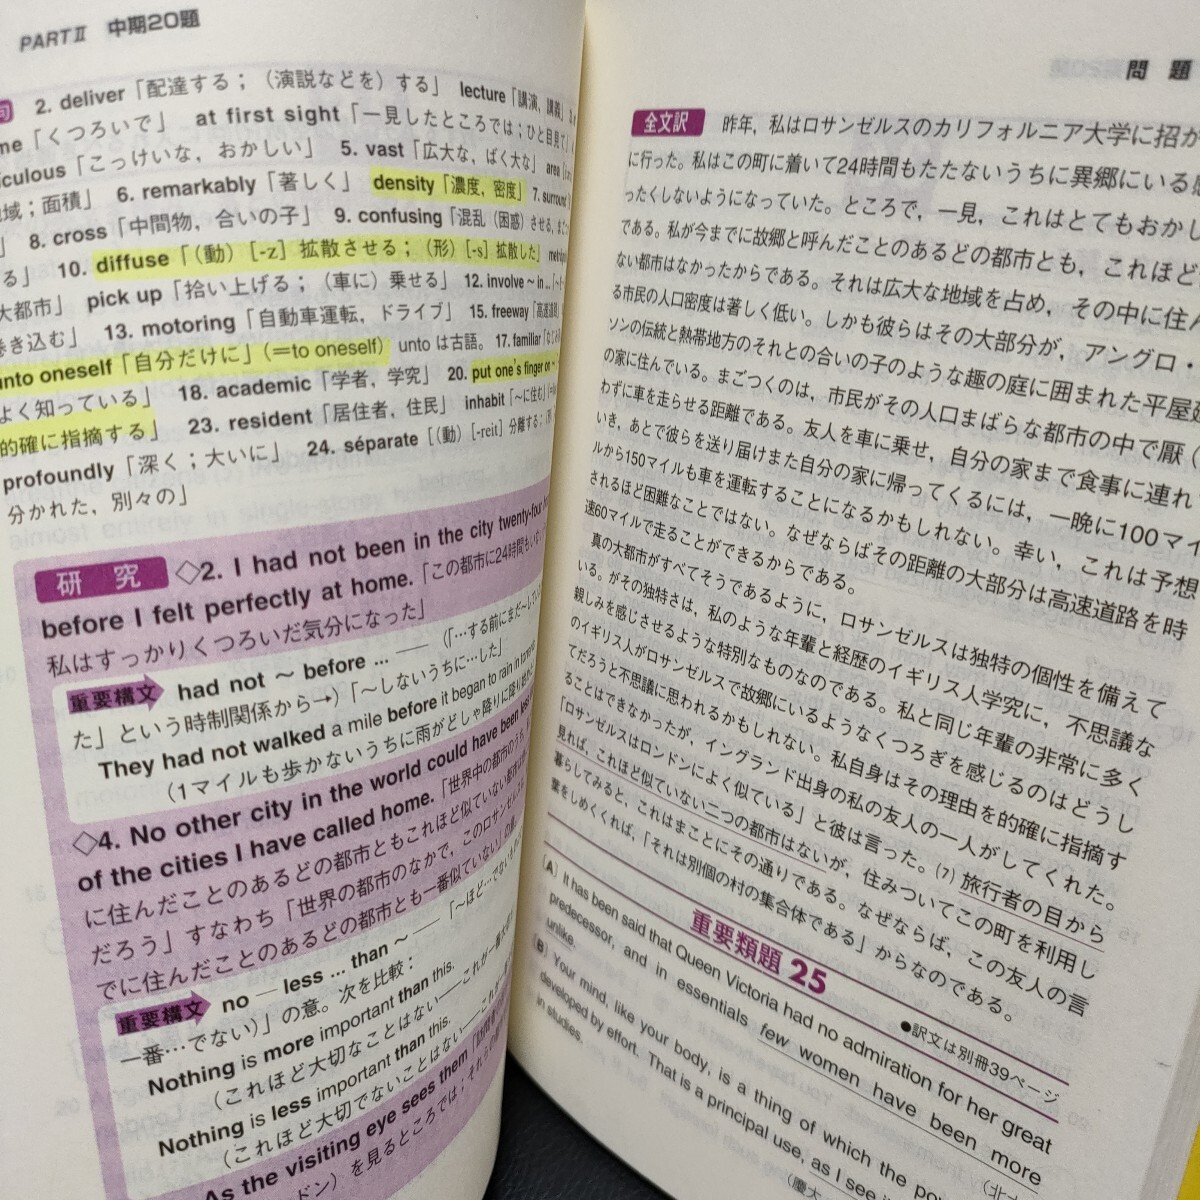 PARTⅡ 中期20題
2. deliver「配達する；（演説などを）する」 lecture「講演，講義」
me「くつろいで」 at first sight「一見したところでは；ひと目見て」
iculous「こっけいな，おかしい」 5. vast「広大な，ばく大な」 area
域；面積」 6. remarkably「著しく」 density「濃度，密度」 7. surround
」 8. cross「中間物，合いの子」 9. confusing「混乱（困惑）させる，
る」 10. diffuse「（動）［-z］拡散させる；（形）［-s］拡散した」
大都市」 pick up「拾い上げる；（車に）乗せる」 12. involve ~ in ...
巻き込む」 13. motoring「自動車運転，ドライブ」 15. freeway「高速道路」
unto oneself「自分だけに」（＝to oneself） unto は古語。 17. familiar
よく知っている」 18. academic「学者，学究」 20. put one's finger on ~
的確に指摘する」 23. resident「居住者，住民」 inhabit「～に住む」
profoundly「深く；大いに」 24. séparate［（動）［-reit］分離する；
分かれた，別々の」
研究 ◇2. I had not been in the city twenty-four
before I felt perfectly at home.「この都市に24時間も
私はすっかりくつろいだ気分になった」
重要構文 had not ～ before ... ──（「…する前にまだ～して
た」という時制関係から→）「～しないうちに…した」
They had not walked a mile before it began to rain in
（1マイルも歩かないうちに雨がどしゃ降りに降り
◇4. No other city in the world could have been less
of the cities I have called home.「世界中の都市のうち
に住んだことのあるどの都市ともこれほど似ていない都市は
だろう」すなわち「世界の都市のなかで，このロサンゼルス
でに住んだことのあるどの都市とも一番似ていない」の意。
重要構文 no ─ less ... than ～ ──「～ほど…でない
一番…でない）」の意。次を比較：
Nothing is more important than this.
（これほど大切なことはない──これが一番
Nothing is less important than this.
（これほど大切でないことはない──
As the visiting eye sees them
ドン）を見るところでは；
問題
全文訳 昨年，私はロサンゼルスのカリフォルニア大学に招か
に行った。私はこの町に着いて24時間もたたないうちに異郷にいる
ったくしないようになっていた。ところで，一見，これはとてもおかし
である。私が今までに故郷と呼んだことのあるどの都市とも，これほど
ない都市はなかったからである。それは広大な地域を占め，その中に住
る市民の人口密度は著しく低い。しかも彼らはその大部分が，アングロ・
ソンの伝統と熱帯地方のそれとの合いの子のような趣の庭に囲まれた平屋
の家に住んでいる。まごつくのは，市民がその人口まばらな都市の中で厭（
わずに車を走らせる距離である。友人を車に乗せ，自分の家まで食事に連れ
いき，あとで彼らを送り届けまた自分の家に帰ってくるには，一晩に100マイ
ルから150マイルも車を運転することになるかもしれない。幸い，これは予想
されるほど困難なことではない。なぜならばその距離の大部分は高速道路を時
速60マイルで走ることができるからである。
真の大都市がすべてそうであるように，ロサンゼルスは独特の個性を備えて
いる。がその独特さは，私のような年輩と経歴のイギリス人学究に，不思議な
親しみを感じさせるような特別なものなのである。私と同じ年輩の非常に多く
のイギリス人がロサンゼルスで故郷にいるようなくつろぎを感じるのはどうし
てだろうと不思議に思われるかもしれない。私自身はその理由を的確に指摘す
ることはできなかったが，イングランド出身の私の友人の一人がしてくれた。
「ロサンゼルスはロンドンによく似ている」と彼は言った。(7) 旅行者の目から
見れば，これほど似ていない二つの都市はないが，住みついてこの町を利用し
暮らしてみると，これはまことにその通りである。なぜならば，この友人の言
葉をしめくくれば，「それは別個の村の集合体である」からなのである。
重要類題 25
●訳文は別冊39ページ
〔A〕 It has been said that Queen Victoria had no admiration for her great
predecessor, and in essentials few women have been more
unlike.
〔B〕 Your mind, like your body, is a thing of which the
developed by effort. That is a principal use, as I see
in studies.